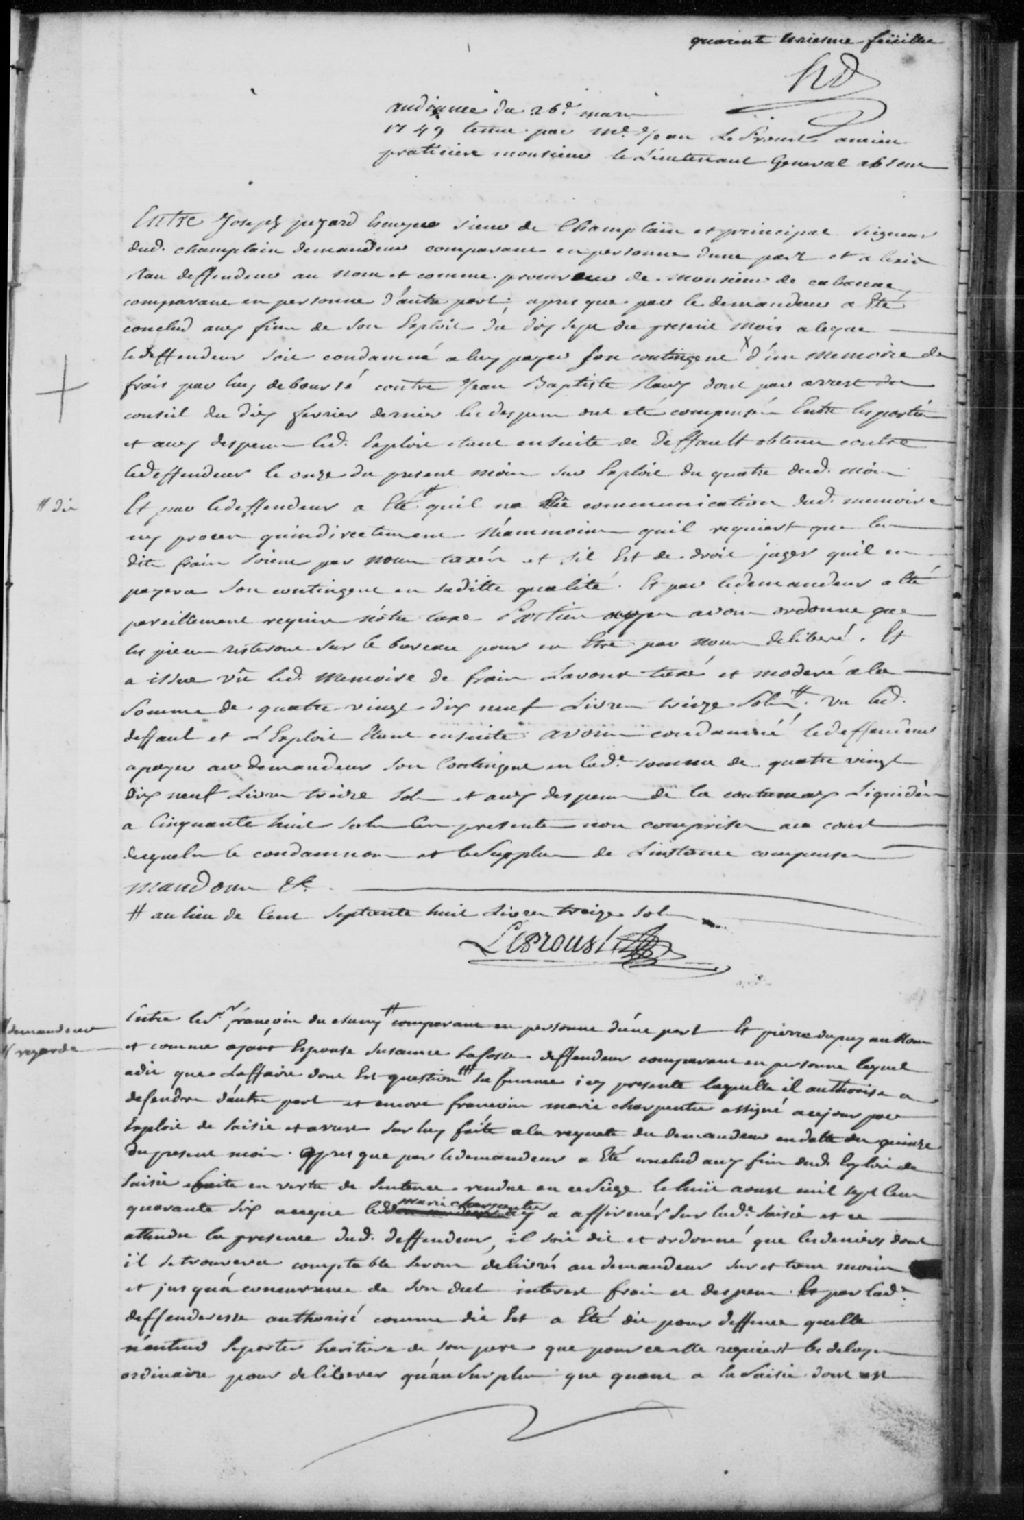 quarente troisieme feuille
audiance du 26e. mars
1749 tenue par me. Jean Leproust ancien
praticien monsieur le Lieutenant General absent
Entre Joseph juyard Ecuyer sieur de Champlain et principal seigneur
dud. champlain demandeur comparant en personne d'une part et
deffendeur au nom et comme procureur de monsieur de cabanac
comparant en personne d'autre part, apres que par le demandeur a Eté
conclud aux fins de son Exploit du dix sept du present mois a ce que
ledeffendeur soit condamné a luy payer son contingent d'un memoire de
frais par luy deboursé contre Jean Baptiste Rau dont par arrest du
conseil du dix fevrier dernier les despens ont eté compensés Entre les parties
et aux despens led. Exploit étant ensuite de deffault obtenu contre
ledeffendeur le onze du present mois sur Exploit du quatre dud. mois
# dit
Et par ledeffendeur a Eté # quil na Eue communication dud. memoire
ny proces quindirectement Néanmoins quil requiert que les
dits frais soient par nous taxés et sil Est de droit juger quil en
payera son contingent en saditte qualité. Et par le demandeur a Eté
pareillement requis nôtre taxe Parties ouyes avons ordonné que
les pieces resteront sur le bureau pour en Etre par nous deliberé. Et
a issue vû led. Memoire de frais Lavons taxé et moderé a la
somme de quatre vingt dix neuf Livres treize sols #. vu led.
deffaut et L'Exploit Etant ensuite avons condamné ledeffendeur
a payer au demandeur son Contingent en lade. somme de quatre vingt
dix neuf Livres treize sols et aux despens de la contumace Liquidés
a Cinquante huit sols les presentes non comprises au cout
desquelles le condamnons et le surplus de Linstance compensés
mandons &c.
# au lieu de Cent septante huit Livres treize sols
Leproust
# demandeur
Entre le sr. françois ducluny # comparant en personne d'une part Et pierre dupuy au Nom
## regarde
et comme ayant Epousé Susanne Lafosse deffendeur comparant en personne lequel
a dit que Laffaire dont Est question ## sa femme icy presente laquelle il authorise a
defendre d'autre part et encore francois marie charpentier assigné a ce jour par
Exploit de saisie et arrest sur luy faite a la requete du demandeur en datte du quinze
du present mois. Apres que par ledemandeur a Eté conclud aux fins dud. Exploit de
saisie faite en vertu de sentence rendue en ce siege le huit aoust mil sept cent
quarante six a ce que led. marie charpentier a affirmer sur lade. saisie et ce
attendu la presence dud. deffendeur, il soit dit et ordonné que les deniers dont
il se trouvera comptable seront delivrés au demandeur sur et tant moins
et jusqu'a concurence de son deu interest frais et despens. Et par lade.
deffenderesse authorisé comme dit Est a Eté dit pour deffence quelle
n'entend se porter heritiere de son pere que pource elle requiert les delays
ordinaire pour deliberer qu'au surplus que quant a la saisie dont est